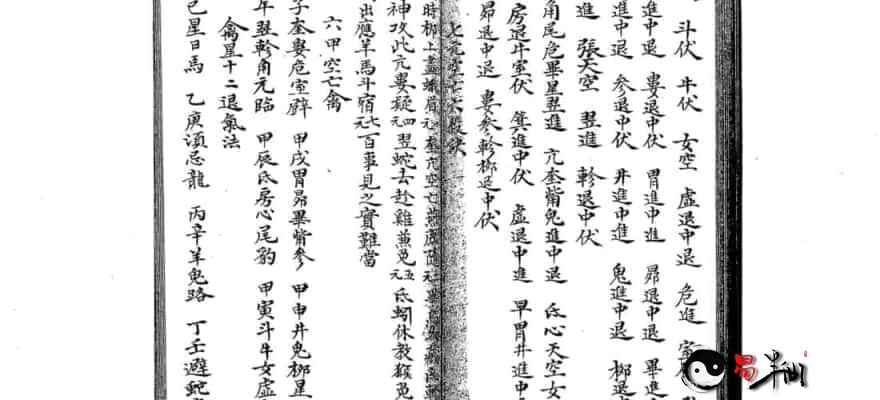 斗伏 牛伏 女空 虛退中退 危進 室
進中退 婁退中伏 胃進中進 昴退中退 畢進
進中退 參退中伏 井進中進 鬼進中退 柳退
進 張天空 翌進 軫退中伏
角尾危畢星翌進 亢奎觜鬼進中退 氐心天空女
房退斗室伏 箕進中伏 虛退中進 早胃井進中
昴退中退 婁參軫柳退中伏
七元空亡六殺訣
時柳上畫蛾眉元 奎亢空亡
神攻此亢婁疑元四 翌蛇去赴雞蕪兔元五 氐蚓休教猴兔
出應羊馬斗宿元七 百事見之實難當
六甲空亡禽
子奎婁危室辟 甲戌胃昴畢觜參 甲申井鬼柳星
年翌軫角亢臨 甲辰氐房心尾豹 甲寅斗牛女虛
禽星十二退氣法
己星日馬 乙庚須忌龍 丙辛羊兔路 丁壬避蛇
易半仙